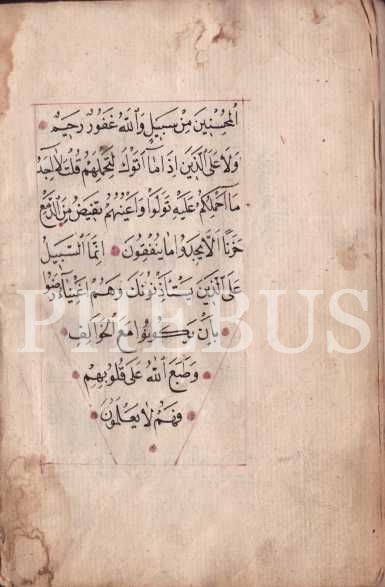 المحسنين من سبيل والله غفور رحيم
ولا على الذين اذا ما اتوك لتحملهم قلت لا اجد
ما احملكم عليه تولوا واعينهم تفيض من الدمع
حزنا الا يجدوا ما ينفقون انما السبيل
على الذين يستأذنونك وهم اغنياء رضوا
بان يكونوا مع الخوالف
وطبع الله على قلوبهم
فهم لا يعلمون
PHEBUS